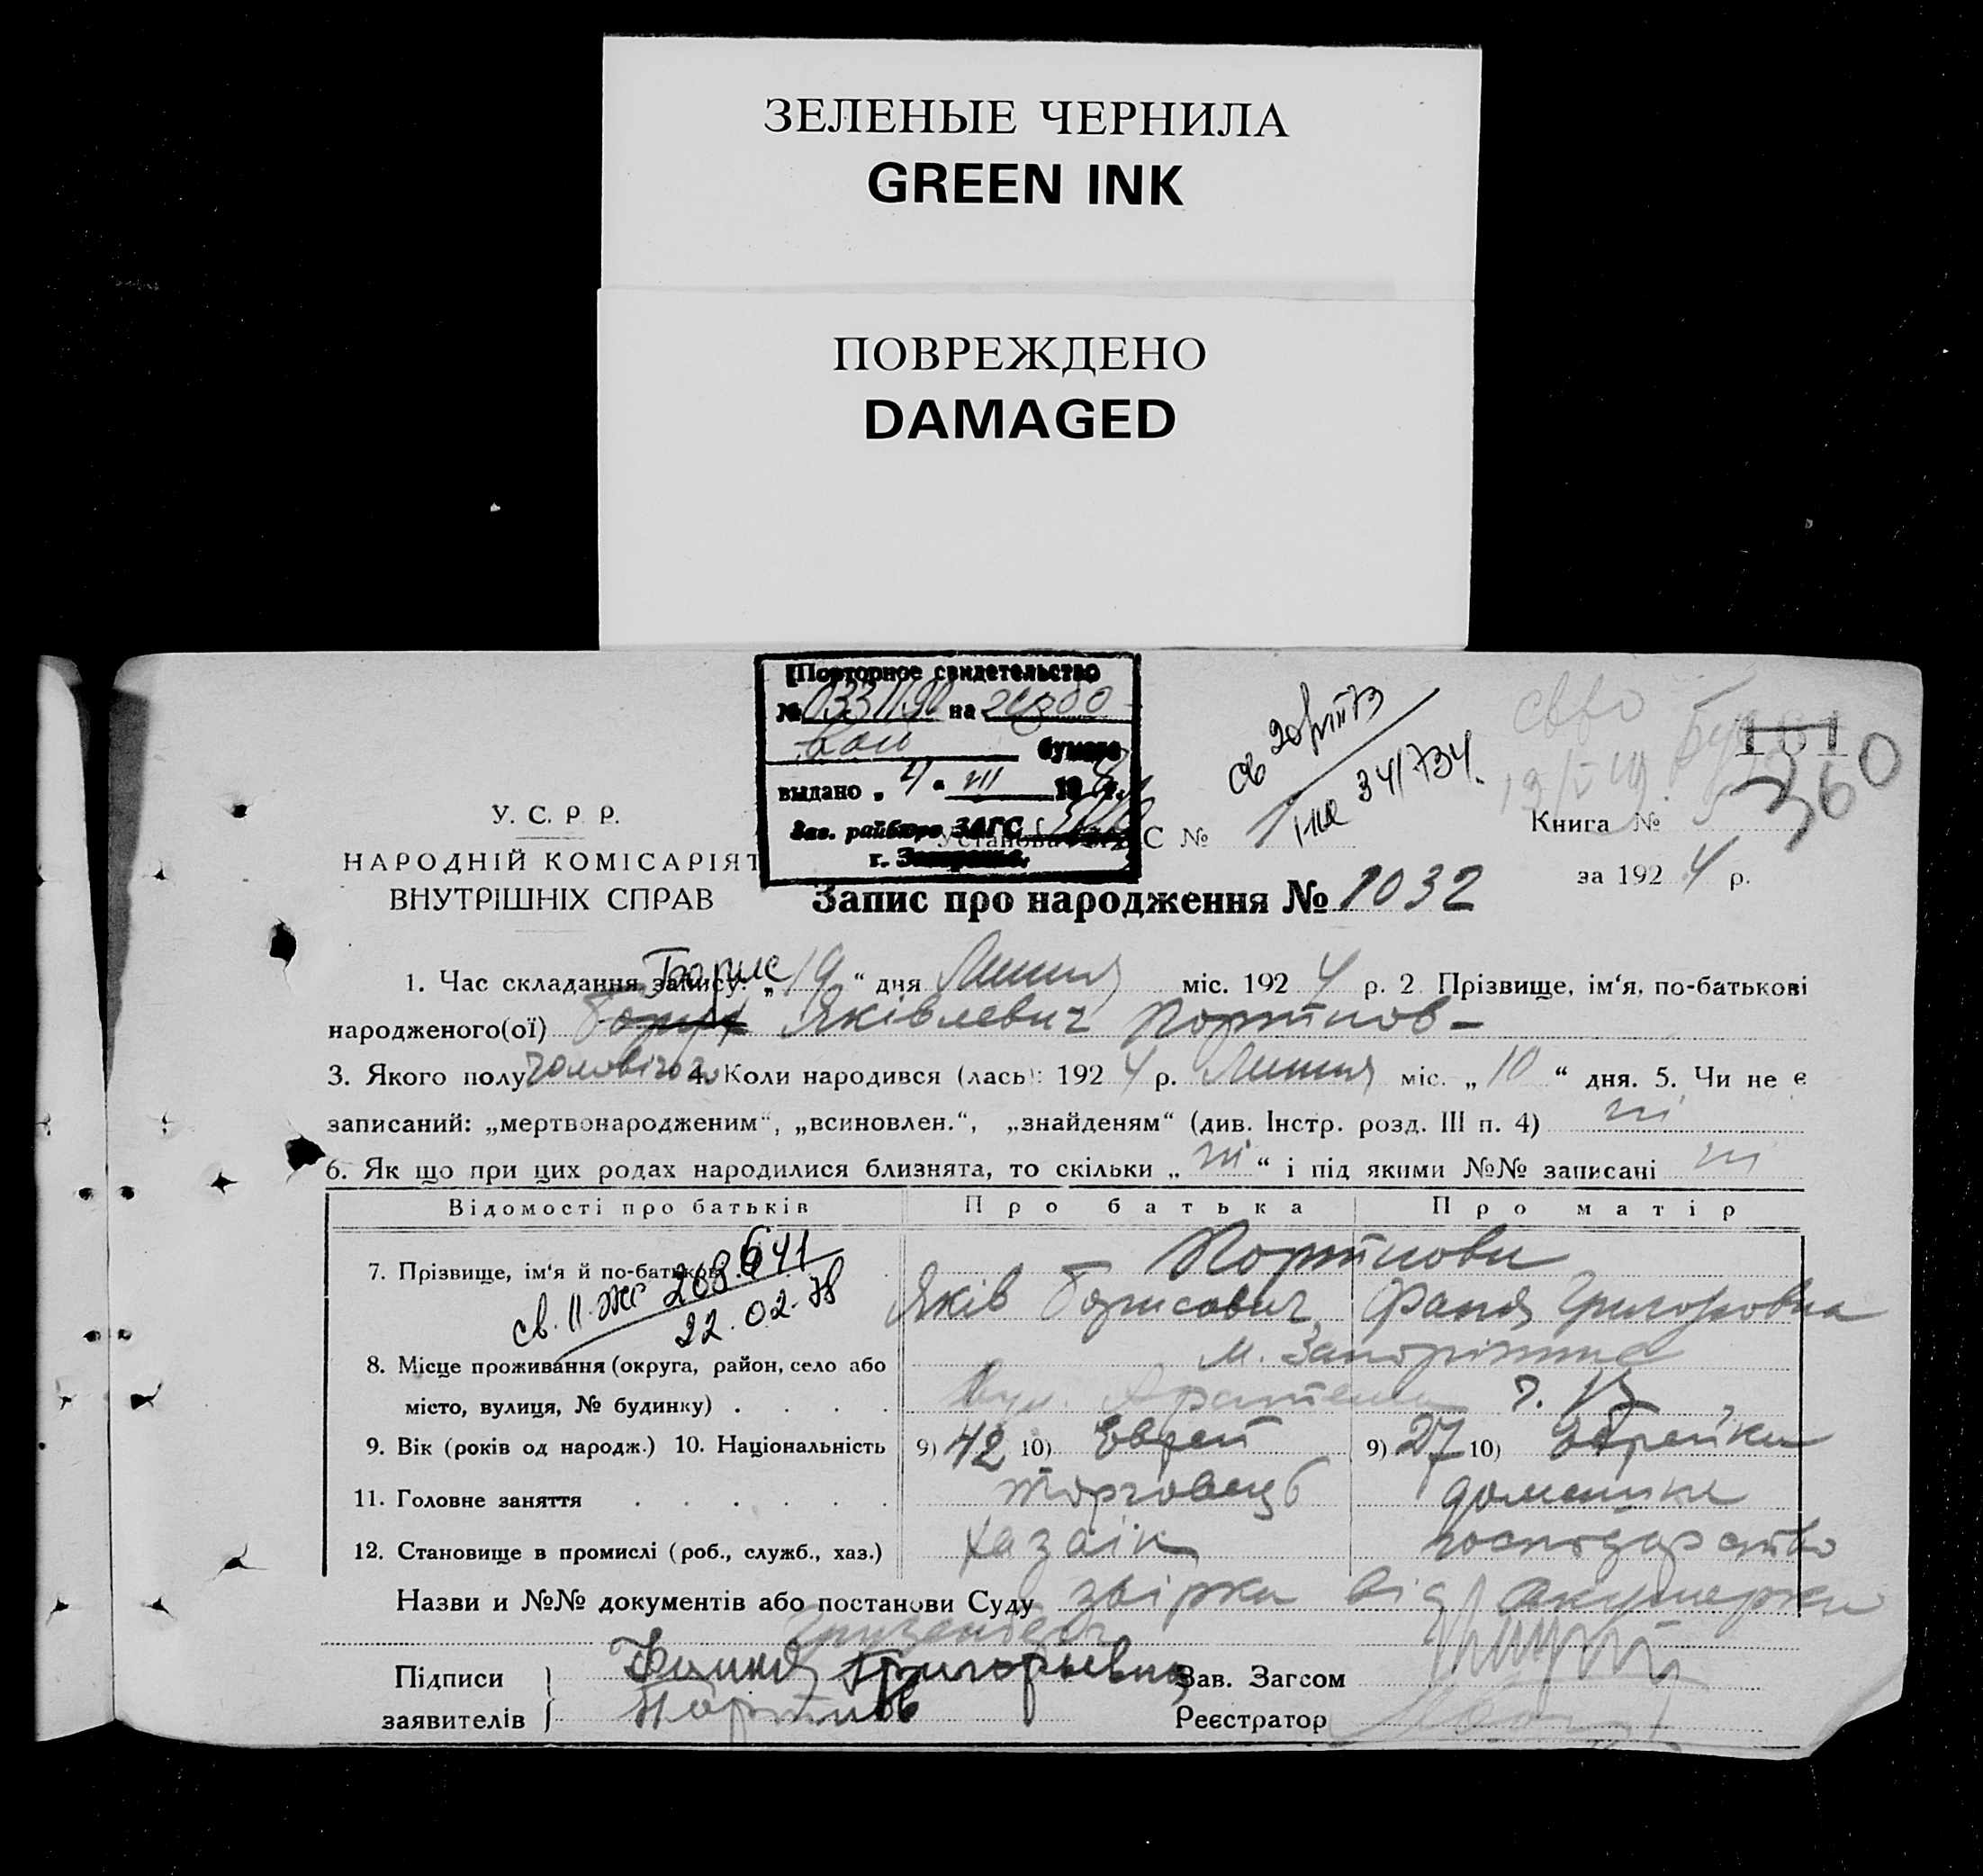 ЗЕЛЕНЫЕ ЧЕРНИЛА
GREEN INK
ПОВРЕЖДЕНО
DAMAGED
Повторное свидетельство
№ на
бумаге
выдано „4“ VIII 19 г.
Зав. райбюро ЗАГС
г.
341734
181
360
У. С. Р. Р.
НАРОДНІЙ КОМІСАРІЯТ
ВНУТРІШНІХ СПРАВ
Установа С №
Книга № 5
за 1924 р.
Запис про народження № 1032
Борис
1. Час складання запису: „19“ дня Липня міс. 1924 р. 2 Прізвище, ім‘я, по-батькові
народженого(ої) Яківлевич Портнов
3. Якого полу чоловічого 4. Коли народився (лась): 1924 р. Липня міс. „10“ дня. 5. Чи не є
записаний: „мертвонародженим“, „всиновлен.“, „знайденям“ (див. Інстр. розд. III п. 4) ні
6. Як що при цих родах народилися близнята, то скільки „ні“ і під якими №№ записані ні
Відомості про батьків Про батька Про матір
7. Прізвище, ім‘я й по-батькові Портнови
Яків Борисович Фаня Григоровна
св. II-жс 208641
22.02.78
8. Місце проживання (округа, район, село або м. Запоріжжє
місто, вулиця, № будинку) вул.
9. Вік (років од народж.) 10. Національність 9) 42 10) Еврей 9) 27 10) Эврейка
11. Головне заняття торговець домашнє
12. Становище в промислі (роб., служб., хаз.) хазаїн господарство
Назви и №№ документів або постанови Суду від акушерки
Підписи Фаиня Григорьевна Зав. Загсом
заявителів Портнов Реєстратор